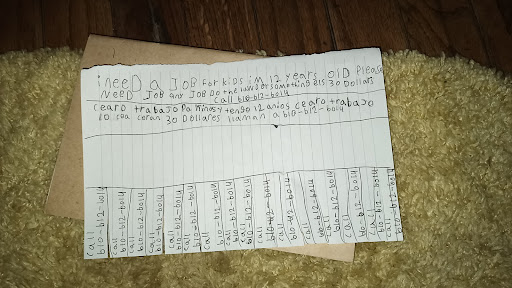 i NeeD a JOB for kiDs im 12 years OlD Please
NeeD JOB any JOB Do the lawn or something els 30 Dollars
Call b10-b12-b014
cearo trabajo Pa Ninos y tengo 12 anios cearo trabajo
30 Dollares llaman a b10-b12-b014
Call b10-b12-b014
Call b10-b12-b014
Call b10-b12-b014
Call b10-b12-b014
Call b10-b12-b014
Call b10-b12-b014
Call b10-b12-b014
Call b10-b12-b014
Call b10-b12-b014
Call b10-b12-b014
Call b10-b12-b014
Call b10-b12-b014
Call b10-b12-b014
Call b10-b12-b014
Call b10-b12-b014
Call b10-b12-b014